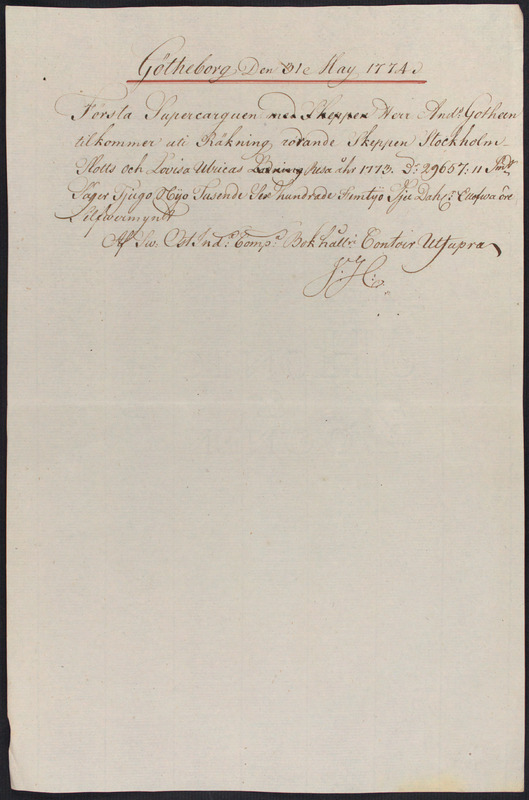 Götheborg Den 31e May 1774.
Första Supercarguen med Skeppen Herr Andrs Gotheen
tilkommer uti Räkning rörande Skeppen Stockholms
Slotts och Lovisa Ulricas Resa åhr 1773. Dr 29657:11 Smt
Säger Tjugo Nijo Tusende Sex hundrade Femtijo Sju Dahlr Ellofwa öre
Silfwermynt
Af Sw: Ost Inde Compe Bokhålle Contoir Utsupra
J: H: